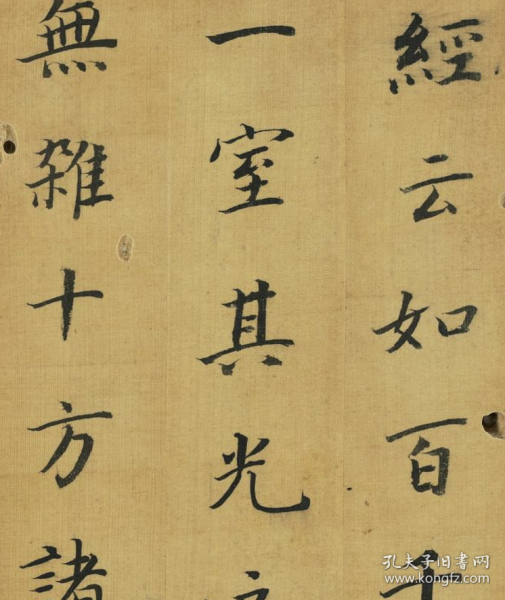 經云如百千
一室其光
無雜十方諸
孔夫子旧書网
www.kongfz.com